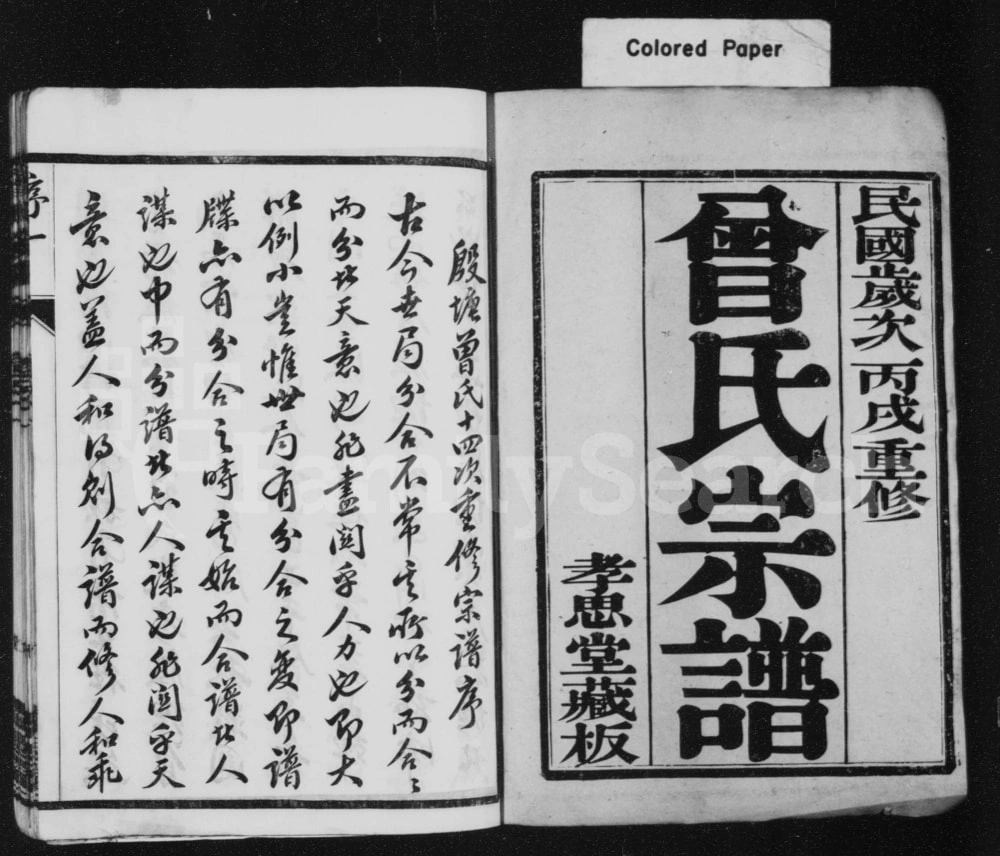 Colored Paper
民國歲次丙戌重修
曾氏宗譜
孝思堂藏板
殷塘曾氏十四次重修宗譜序
古今世局分合不常其所以分而合合
而分者天意也非盡関乎人力也即大
以例小豈惟世局有分合之変即譜
牒亦有分合之時其始而合譜者人
謀也中而分譜者亦人謀也非関乎天
意也盖人和得創合譜而修人和乖
序一
FamilySearch